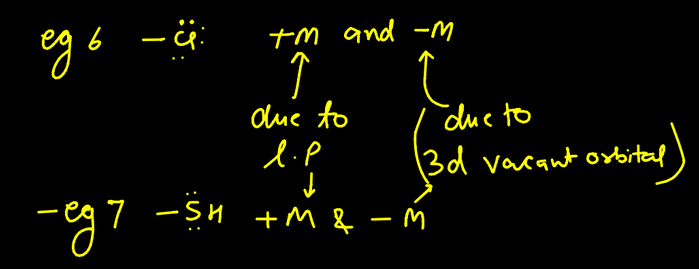 eg 6 -Cl: +M and -M
due to due to
l.P (3d vacant orbital)
-eg 7 -SH +M & -M